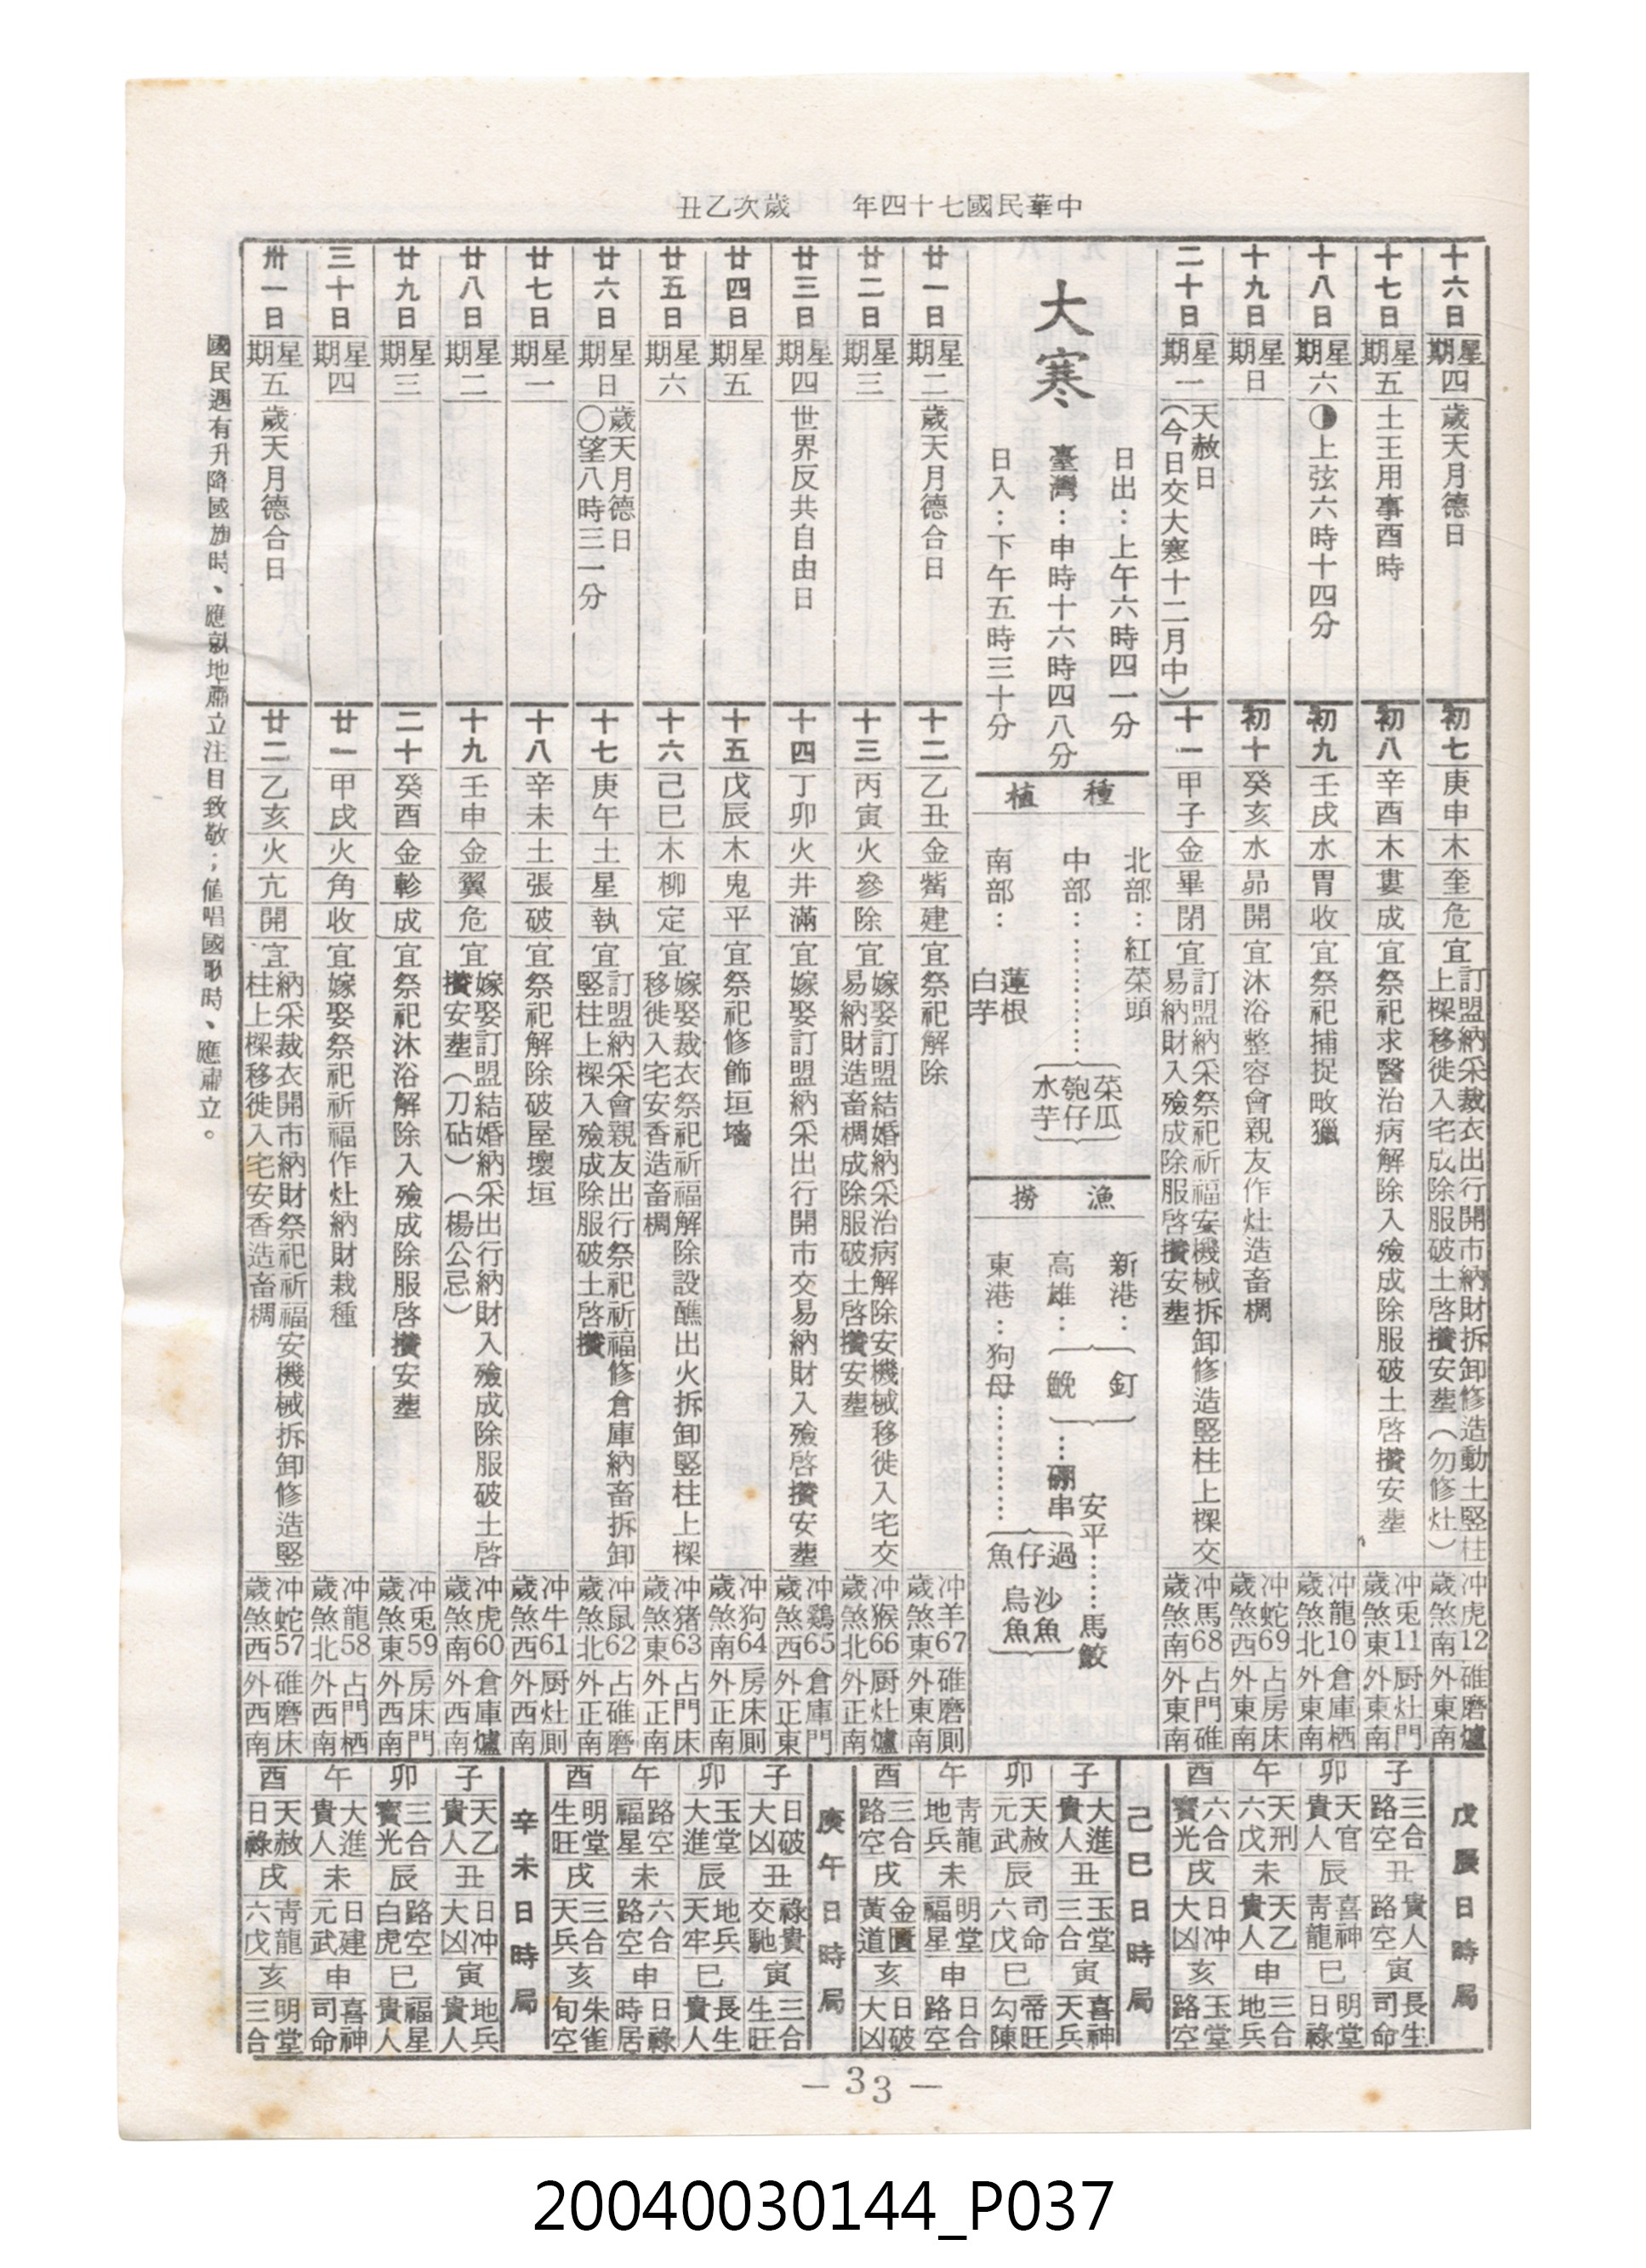 中華民國七十四年　歲次乙丑
十六日 星期四 歲天月德日 初七 庚申 木 奎 危 宜 訂盟納采裁衣出行開市納財拆卸修造動土竪柱
上樑移徙入宅成除服破土啓攢安塟（勿修灶） 冲虎12 歲煞南 碓磨爐 外東南
十七日 星期五 土王用事酉時 初八 辛酉 木 婁 成 宜 祭祀求醫治病解除入殮成除服破土啓攢安塟 冲兎11 歲煞東 厨灶門 外東南
十八日 星期六 ◑上弦六時十四分 初九 壬戌 水 胃 收 宜 祭祀捕捉畋獵 冲龍10 歲煞北 倉庫栖 外東南
十九日 星期日 初十 癸亥 水 昴 開 宜 沐浴整容會親友作灶造畜椆 冲蛇69 歲煞西 占房床 外東南
二十日 星期一 天赦日
（今日交大寒十二月中） 十一 甲子 金 畢 閉 宜 訂盟納采祭祀祈福安機械拆卸修造竪柱上樑交
易納財入殮成除服啓攢安塟 冲馬68 歲煞南 占門碓 外東南
大寒
日出：上午六時四一分
臺灣：申時十六時四八分
日入：下午五時三十分
種植
北部：紅菜頭
中部：…………菜瓜 匏仔 水芋
南部：蓮根 白芋
漁撈
新港：釘
高雄：鮸
…硼串
安平……馬鮫
東港：狗母…………過仔魚 沙魚 烏魚
廿一日 星期二 歲天月德合日 十二 乙丑 金 觜 建 宜 祭祀解除 冲羊67 歲煞東 碓磨厠 外東南
廿二日 星期三 十三 丙寅 火 參 除 宜 嫁娶訂盟結婚納采治病解除安機械移徙入宅交
易納財造畜椆成除服破土啓攢安塟 冲猴66 歲煞北 厨灶爐 外正南
廿三日 星期四 世界反共自由日 十四 丁卯 火 井 滿 宜 嫁娶訂盟納采出行開市交易納財入殮啓攢安塟 冲鷄65 歲煞西 倉庫門 外正東
廿四日 星期五 十五 戊辰 木 鬼 平 宜 祭祀修飾垣墻 冲狗64 歲煞南 房床厠 外正南
廿五日 星期六 十六 己巳 木 柳 定 宜 嫁娶裁衣祭祀祈福解除設醮出火拆卸竪柱上樑
移徙入宅安香造畜椆 冲猪63 歲煞東 占門床 外正南
廿六日 星期日 歲天月德日
〇望八時三一分 十七 庚午 土 星 執 宜 訂盟納采會親友出行祭祀祈福修倉庫納畜拆卸
竪柱上樑入殮成除服破土啓攢 冲鼠62 歲煞北 占碓磨 外正南
廿七日 星期一 十八 辛未 土 張 破 宜 祭祀解除破屋壞垣 冲牛61 歲煞西 厨灶厠 外西南
廿八日 星期二 十九 壬申 金 翼 危 宜 嫁娶訂盟結婚納采出行納財入殮成除服破土啓
攢安塟（刀砧）（楊公忌） 冲虎60 歲煞南 倉庫爐 外西南
廿九日 星期三 二十 癸酉 金 軫 成 宜 祭祀沐浴解除入殮成除服啓攢安塟 冲兎59 歲煞東 房床門 外西南
三十日 星期四 廿一 甲戌 火 角 收 宜 嫁娶祭祀祈福作灶納財栽種 冲龍58 歲煞北 占門栖 外西南
卅一日 星期五 歲天月德合日 廿二 乙亥 火 亢 開 宜 納采裁衣開市納財祭祀祈福安機械拆卸修造竪
柱上樑移徙入宅安香造畜椆 冲蛇57 歲煞西 碓磨床 外西南
國民遇有升降國旗時、應就地肅立注目致敬；值唱國歌時、應肅立。
戊辰日時局
子 三合路空 丑 貴人路空 寅 長生司命
卯 天官貴人 辰 喜神靑龍 巳 明堂日祿
午 天刑六戊 未 天乙貴人 申 三合地兵
酉 六合寶光 戌 日冲大凶 亥 玉堂路空
己巳日時局
子 大進貴人 丑 玉堂三合 寅 喜神天兵
卯 天赦元武 辰 司命六戊 巳 帝旺勾陳
午 靑龍地兵 未 明堂福星 申 日合路空
酉 三合路空 戌 金匱黃道 亥 日破大凶
庚午日時局
子 日破大凶 丑 祿貴交馳 寅 三合生旺
卯 玉堂大進 辰 地兵天牢 巳 長生貴人
午 路空福星 未 六合路空 申 日祿時居
酉 明堂生旺 戌 三合天兵 亥 朱雀旬空
辛未日時局
子 天乙貴人 丑 日冲大凶 寅 地兵貴人
卯 三合寶光 辰 路空白虎 巳 福星貴人
午 大進貴人 未 日建元武 申 喜神司命
酉 天赦日祿 戌 靑龍六戊 亥 明堂三合
— 33 —
20040030144_P037